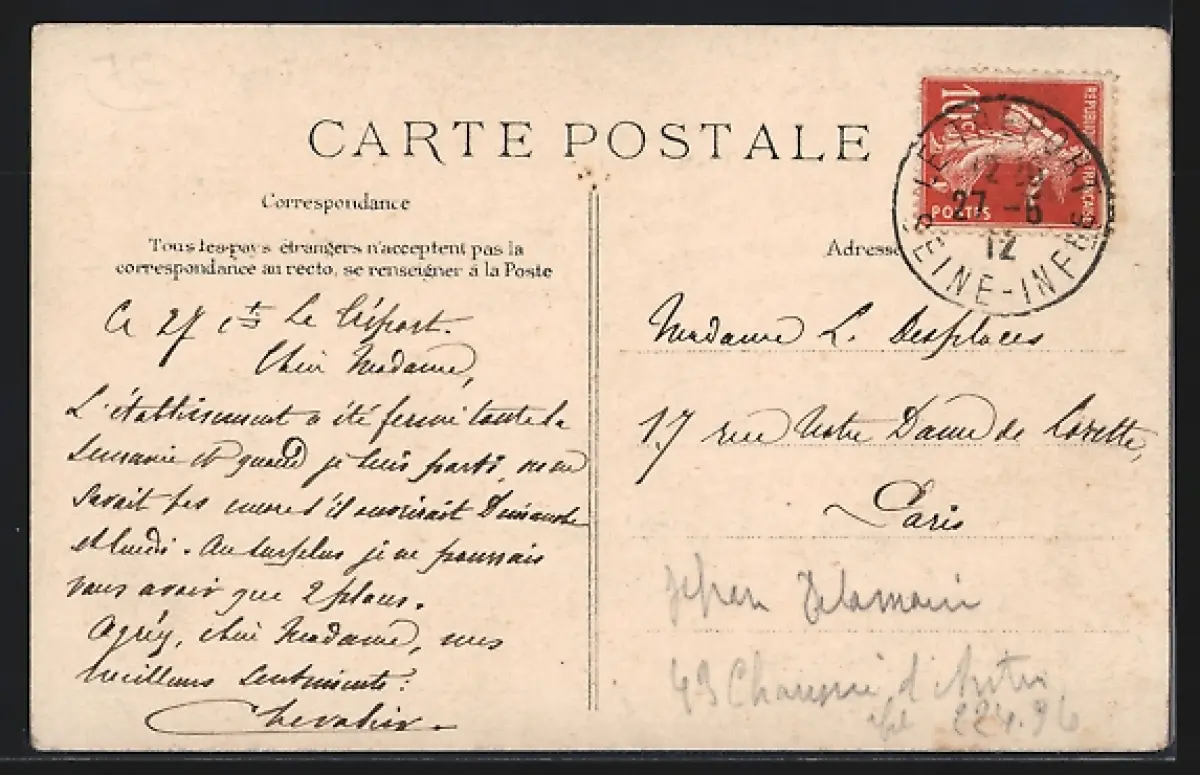 CARTE POSTALE
Correspondance
Tous les pays étrangers n'acceptent pas la
correspondance au recto, se renseigner à la Poste
Ce 27 ct Le Tréport.
Chère Madame,
L'établissement a été fermé toute la
semaine et quand je suis parti, on ne
savait pas encore s'il ouvrirait Dimanche
et lundi. Au surplus je ne pourrais
vous avoir que 2 places.
Agréez, chère Madame, mes
meilleurs sentiments.
Chevalier
10c
REPUBLIQUE FRANÇAISE
POSTES
LE TREPORT
27 -5
12
SEINE-INFRE
Adresse
Madame L. Desplaces
17 rue Notre Dame de Lorette,
Paris
Delamain
43 Chaussée d'Antin
224.96